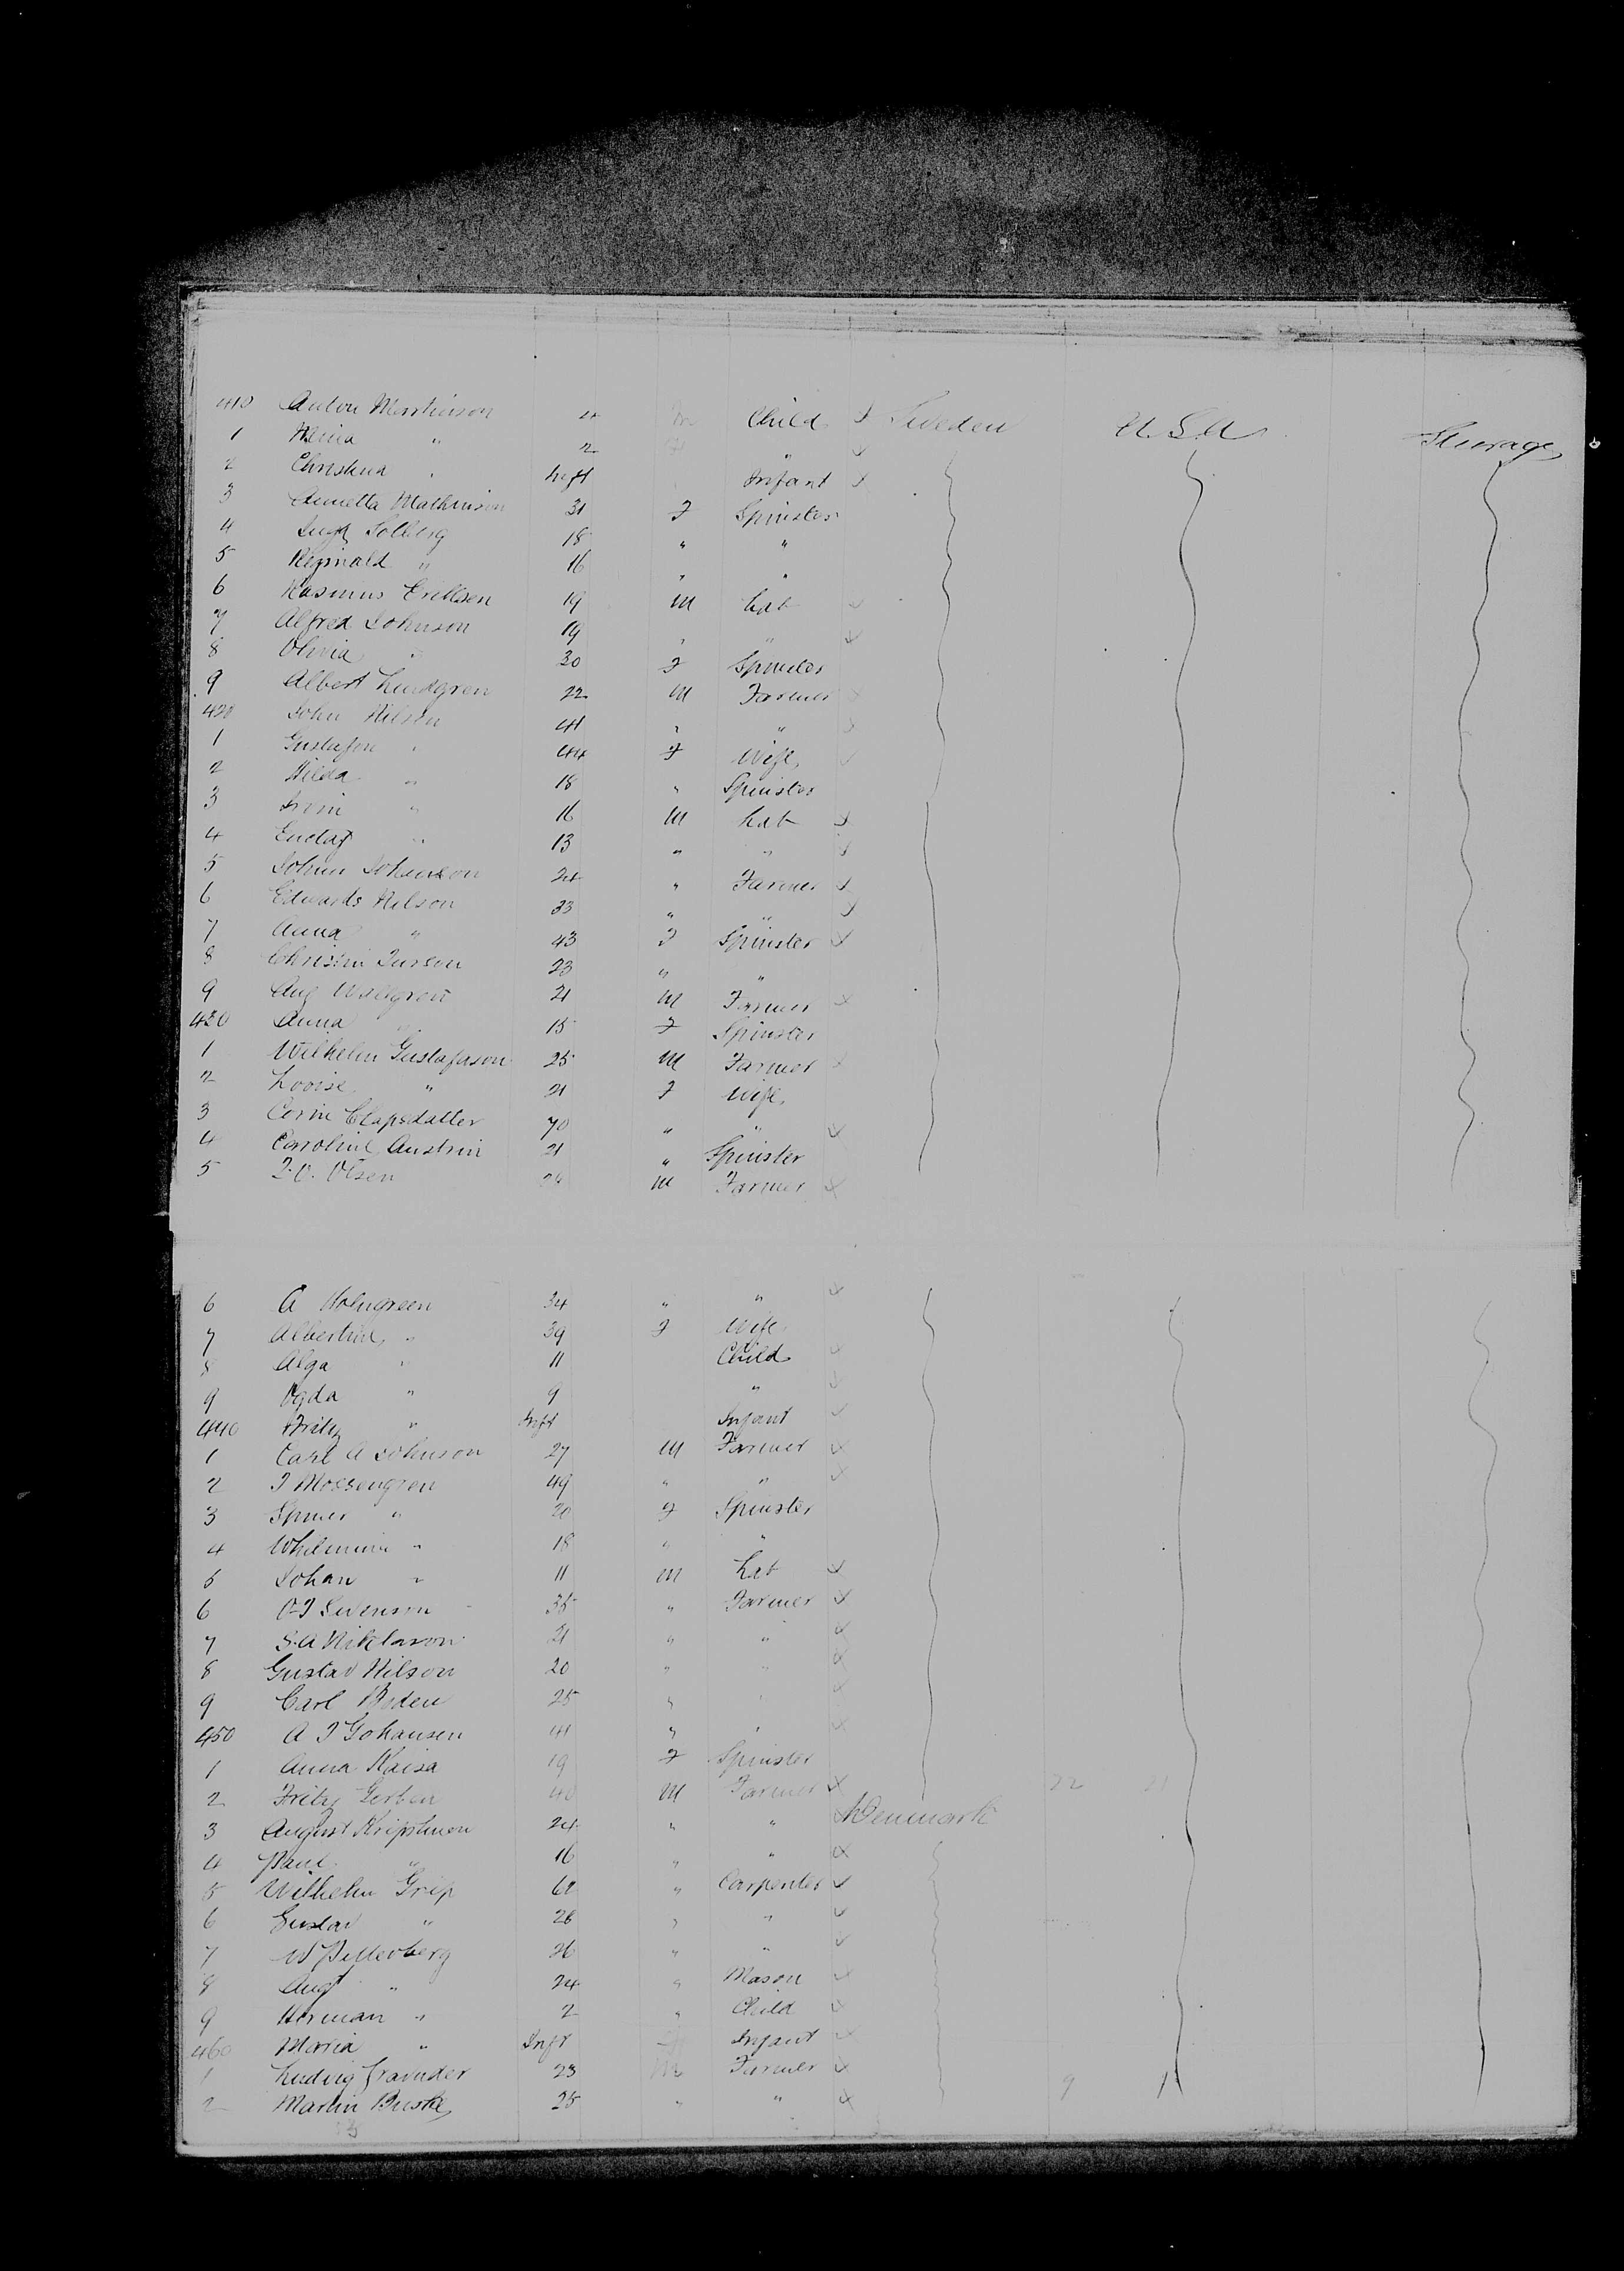 410 Anton Martinson 4 m Child Sweden U.S.A. Steerage
1 " 2 F "
2 Christina " Inft Infant
3 Annetta Mathinson 31 F Spinster
4 Solberg 18 " "
5 Reginald " 16 " "
6 Rasmus Eriksen 19 M Lab
7 Alfred Johnson 19 " "
8 Olivia " 30 F Spinster
9 Albert Lindgren 22 M Farmer
420 John Nilson 41 " "
1 " 44 F Wife
2 Hilda " 18 " Spinster
3 " 16 M Lab
4 " 13 " "
5 Johan Johanson 24 " Farmer
6 Edwards Nelson 33 " "
7 Anna " 43 F Spinster
8 23 " "
9 Aug 21 M Farmer
430 Anna " 15 F Spinster
1 Wilhelm Gustafason 25 M Farmer
2 Lovise " 21 F Wife
3 70 " "
4 Caroline Austrin 21 " Spinster
5 Olsen M Farmer
6 A Holmgreen 34 " "
7 Albertina " 39 F Wife
8 Alga " 11 Child
9 Ogda " 9 "
440 Fritz " Inft Infant
1 Carl A Johnson 27 M Farmer
2 49 " "
3 " 20 F Spinster
4 " 18 " "
5 Johan " 11 M Lab
6 Swenson 35 " Farmer
7 S.A 21 " "
8 Gustav Nilson 20 " "
9 Carl Boden 25 " "
450 A J Johansen 41 " "
1 Anna Kaisa 19 F Spinster
2 Fritz Gerben 40 M Farmer 22 21
3 August 24 " " Denmark
4 Paul " 16 " "
5 Wilhelm Grip 62 " Carpenter
6 Gustav " 28 " "
7 26 " "
8 Augt " 24 " Mason
9 Herman " 2 " Child
460 Maria " Inft Infant
1 Ludvig 23 M Farmer 9 1
2 Martin 25 " "